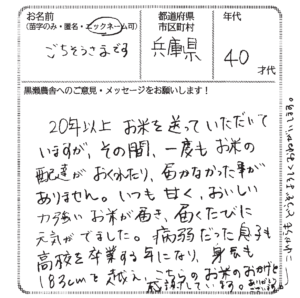 お名前
(苗字のみ・匿名・ニックネーム可)
ごちそうさまです
都道府県
市区町村
兵庫県
年代
40
才代
黒瀬農舎へのご意見・メッセージをお願いします！
20年以上 お米を送っていただいて
いますが、その間、一度もお米の
配達がおくれたり、届かなかった事が
ありません。いつも甘く、おいしい
力強いお米が届き、届くたびに
元気がでました。病弱だった息子も
高校を卒業する年になり、身長も
183cmを越え、こちらのお米のおかげと
感謝しています。